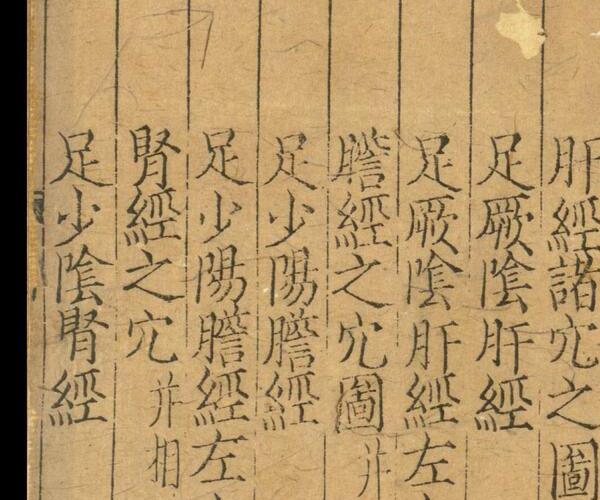 肝經諸穴之圖
足厥陰肝經
足厥陰肝經左
膽經之穴圖并
足少陽膽經
足少陽膽經左
腎經之穴并相
足少陰腎經